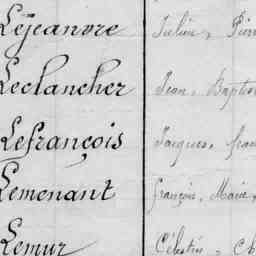 Lejeanvre Julien, Pierr
Leclancher Jean, Baptis
Lefrançois Jacques, fran
Lemenant françois, Marie,
Lemur Célestin, Ch